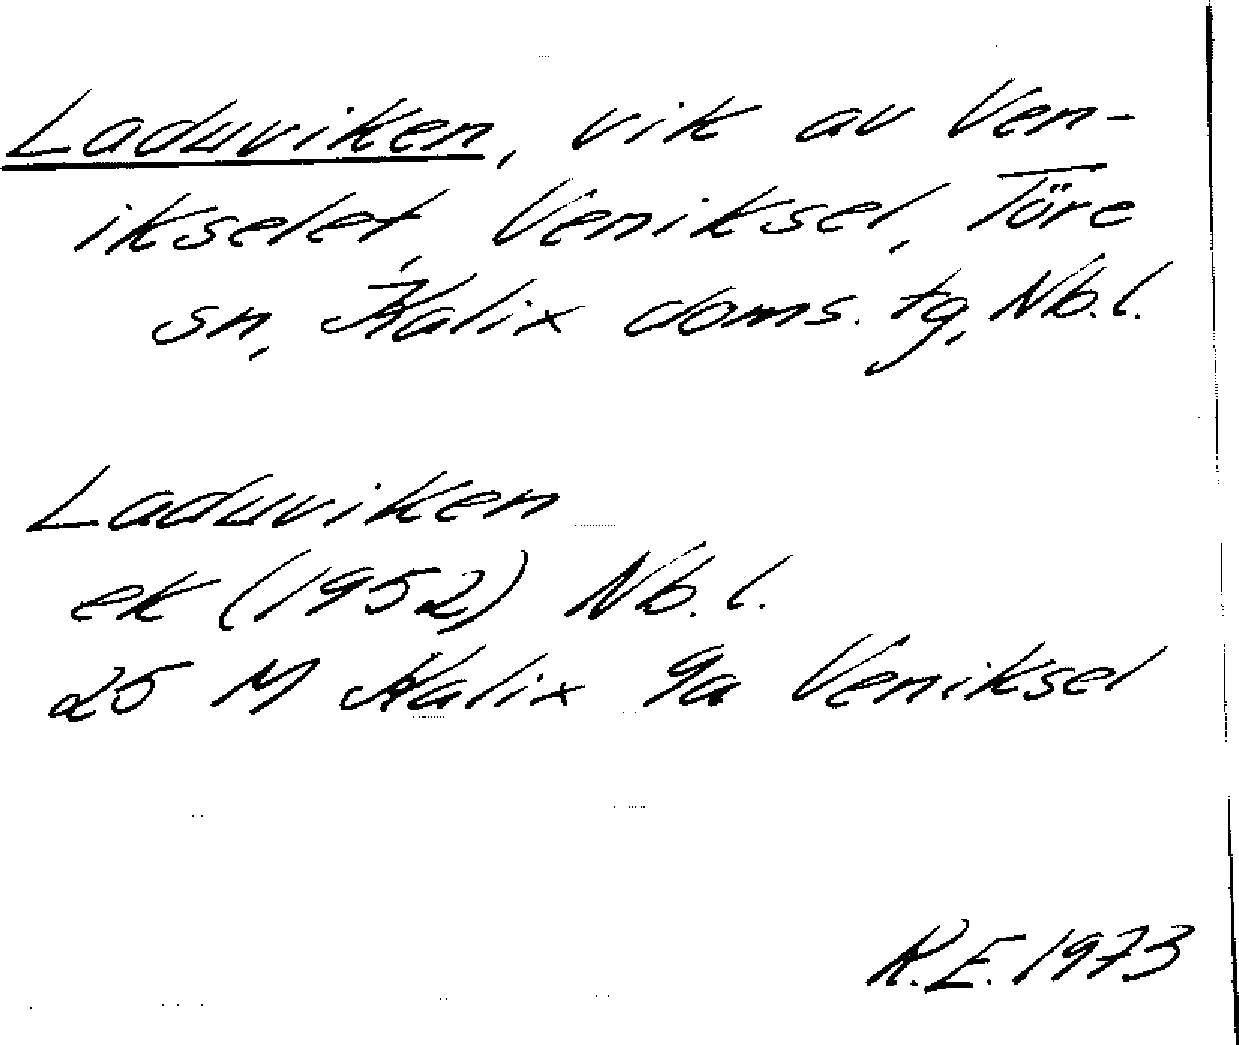 Laduviken, vik av Ven-
ikselet, Veniksel, Töre
sn, Kalix doms. tg, Nb. l.
Laduviken
ek (1952) Nb. l.
25 M Kalix 9a Veniksel
R.E. 1973